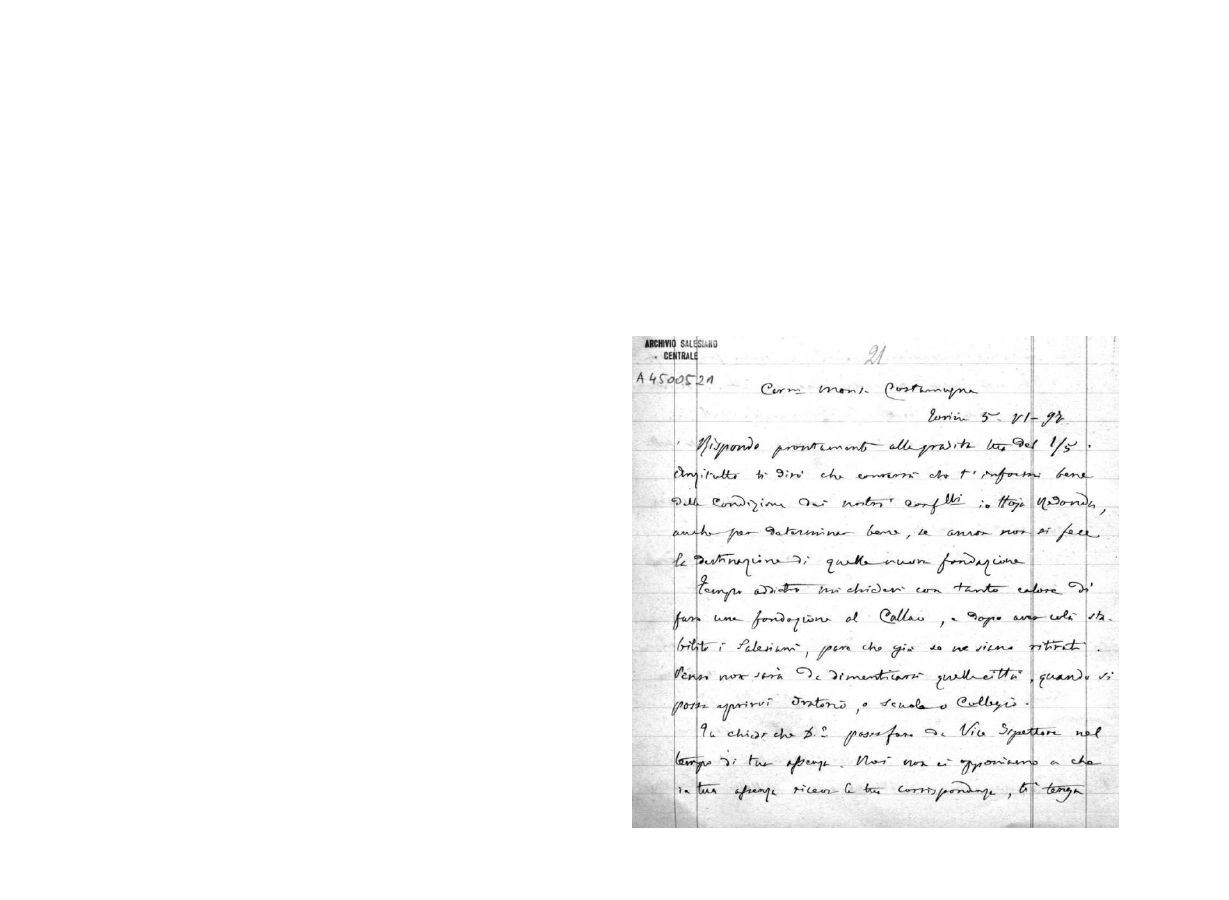 ARCHIVIO SALESIANO
CENTRALE
21
A4500521
Carm Monsr Costamagna
Torino 5-VI-97
Rispondo prontamente alla gradita tua del 1/5.
Anzitutto ti dirò che converrà che t'informi bene
della condizione dei nostri conflli in Hoja Redonda,
anche per determinar bene, se ancor non si fece
la destinazione di quella nuova fondazione
Tempo addietro mi chiedevi con tanto calore di
fare una fondazione al Callao, e dopo aver colà sta-
biliti i Salesiani, pare che già se ne siano ritirati.
Penso non sarà da dimenticarsi quella città, quando si
possa aprirvi Oratorio, o scuola o Collegio.
Tu chiedi che D. possa fare da Vice Ispettore nel
tempo di tua assenza. Noi non ci opponiamo a che
in tua assenza riceva la tua corrispondenza, ti tenga